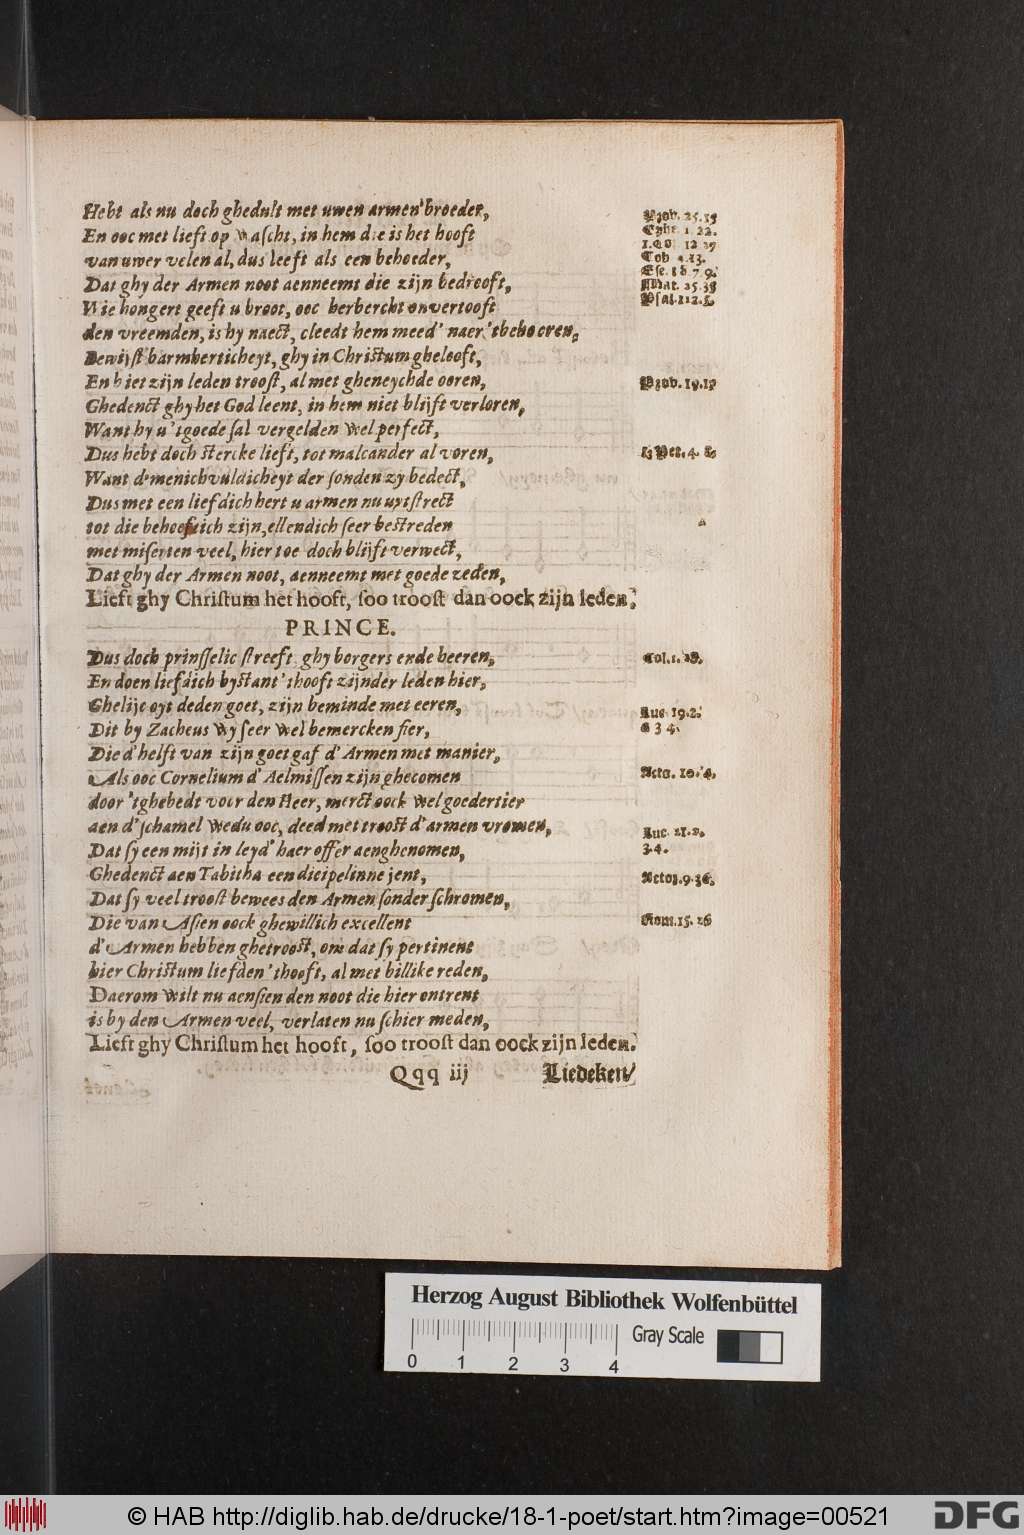 Hebt als nu doch ghedult met uwen armen broeder,
En ooc met lieft op wascht, in hem die is het hooft
van uwer velen al, dus leeft als een behoeder,
Dat ghy der Armen noot aenneemt die zijn bedrooft,
Wie hongert geeft u broot, ooc herbercht onvertooft
den vreemden, is hy naect, cleedt hem meed' naer 'tbehooren,
Bewijst barmherticheyt, ghy in Christum ghelooft,
En biet zijn leden troost, al met gheneychde ooren,
Ghedenct ghy het God leent, in hem niet blijft verloren,
Want hy u 'tgoede sal vergelden wel perfect,
Dus hebt doch stercke lieft, tot malcander al voren,
Want de menichvuldicheyt der sonden zy bedect,
Dus met een liefdich hert u armen nu uytstrect
tot die behoeftich zijn, ellendich seer bestreden
met miserien veel, hier toe doch blijft verwect,
Dat ghy der Armen noot, aenneemt met goede zeden,
Lieft ghy Christum het hooft, soo troost dan oock zijn leden.
PRINCE.
Dus doch prinsselic streeft ghy borgers ende heeren,
En doen liefdich bystant 'thooft zijnder leden hier,
Ghelijc oyt deden goet, zijn beminde met eeren,
Dit by Zacheus wy seer wel bemercken fier,
Die d'helft van zijn goet gaf d'Armen met manier,
Als ooc Cornelium d'Aelmissen zijn ghecomen
door 'tghebedt voor den Heer, merct oock wel goedertier
aen d'schamel weduooc, deed met troost d'armen vromen,
Dat sy een mijt in leyd' haer offer aenghenomen,
Ghedenct aen Tabitha een dicipelinne jent,
Dat sy veel troost bewees den Armen sonder schromen,
Die van Asien oock ghewillich excellent
d'Armen hebben ghetroost, om dat sy pertinent
hier Christum liefden 'thooft, al met billike reden,
Daerom wilt nu aensien den noot die hier ontrent
is by den Armen veel, verlaten nu schier meden,
Lieft ghy Christum het hooft, soo troost dan oock zijn leden.
Qqq iij Liedeken/
Ephe. 1. 22.
Tob 4.13.
Ese. 58. 7. 9.
Mat. 25. 35
Psal. 112. 5.
Prov. 19. 17
1. Pet. 4. 8.
Col. 1. 18.
Luc 19. 2.
8 3 4.
Acto. 10. 4.
Luc. 21. 2.
3. 4.
Actoz. 9. 36.
Rom. 15. 26
Herzog August Bibliothek Wolfenbüttel
Gray Scale
0 1 2 3 4
© HAB http://diglib.hab.de/drucke/18-1-poet/start.htm?image=00521
DFG